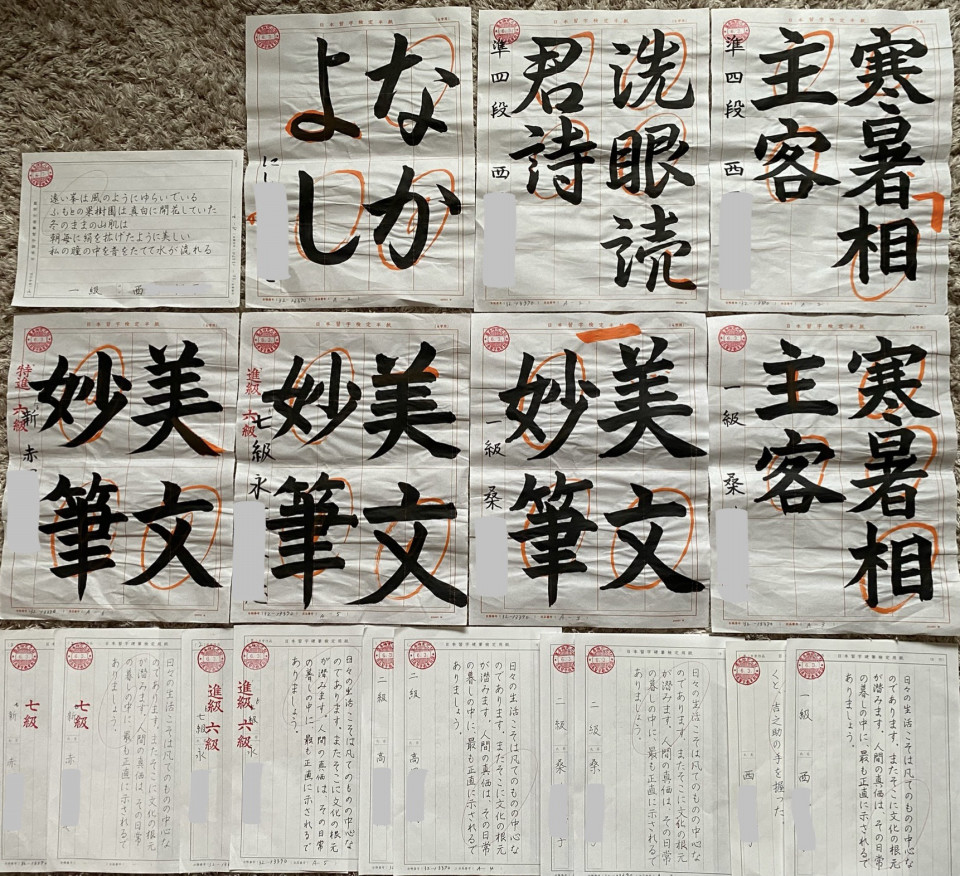 遠い峯は風のようにゆらいでいる
ふもとの果樹園は真白に開花していた
冬のままの山肌は
朝毎に絹を拡げたように美しい
私の瞳の中を音をたてて水が流れる
一級 西
日本習字検定半紙
なかよし
に
日本習字検定半紙
洗眼読
君詩
準四段 西
日本習字検定半紙
寒暑相
主客
準四段 西
日本習字検定半紙
美文
妙筆
特進 六級
新 赤
日本習字検定半紙
美文
妙筆
進級 六級
七級 永
日本習字検定半紙
美文
妙筆
一級 桑
日本習字検定半紙
寒暑相
主客
一級 桑
七級
新 赤
日々の生活こそは凡てのものの中心な
のであります。またそこに文化の根元
が潜みます。人間の真価は、その日常
の暮しの中に、最も正直に示されるで
ありましょう。
七級
新 赤
進級 六級
七級 永
日々の生活こそは凡てのものの中心な
のであります。またそこに文化の根元
が潜みます。人間の真価は、その日常
の暮しの中に、最も正直に示されるで
ありましょう。
進級 六級
永
二級 高
日々の生活こそは凡てのものの中心な
のであります。またそこに文化の根元
が潜みます。人間の真価は、その日常
の暮しの中に、最も正直に示されるで
ありましょう。
二級 高
二級 桑
日々の生活こそは凡てのものの中心な
のであります。またそこに文化の根元
が潜みます。人間の真価は、その日常
の暮しの中に、最も正直に示されるで
ありましょう。
二級 桑
くと、吉之助の手を握った。
西
日々の生活こそは凡てのものの中心な
のであります。またそこに文化の根元
が潜みます。人間の真価は、その日常
の暮しの中に、最も正直に示されるで
ありましょう。
一級 西